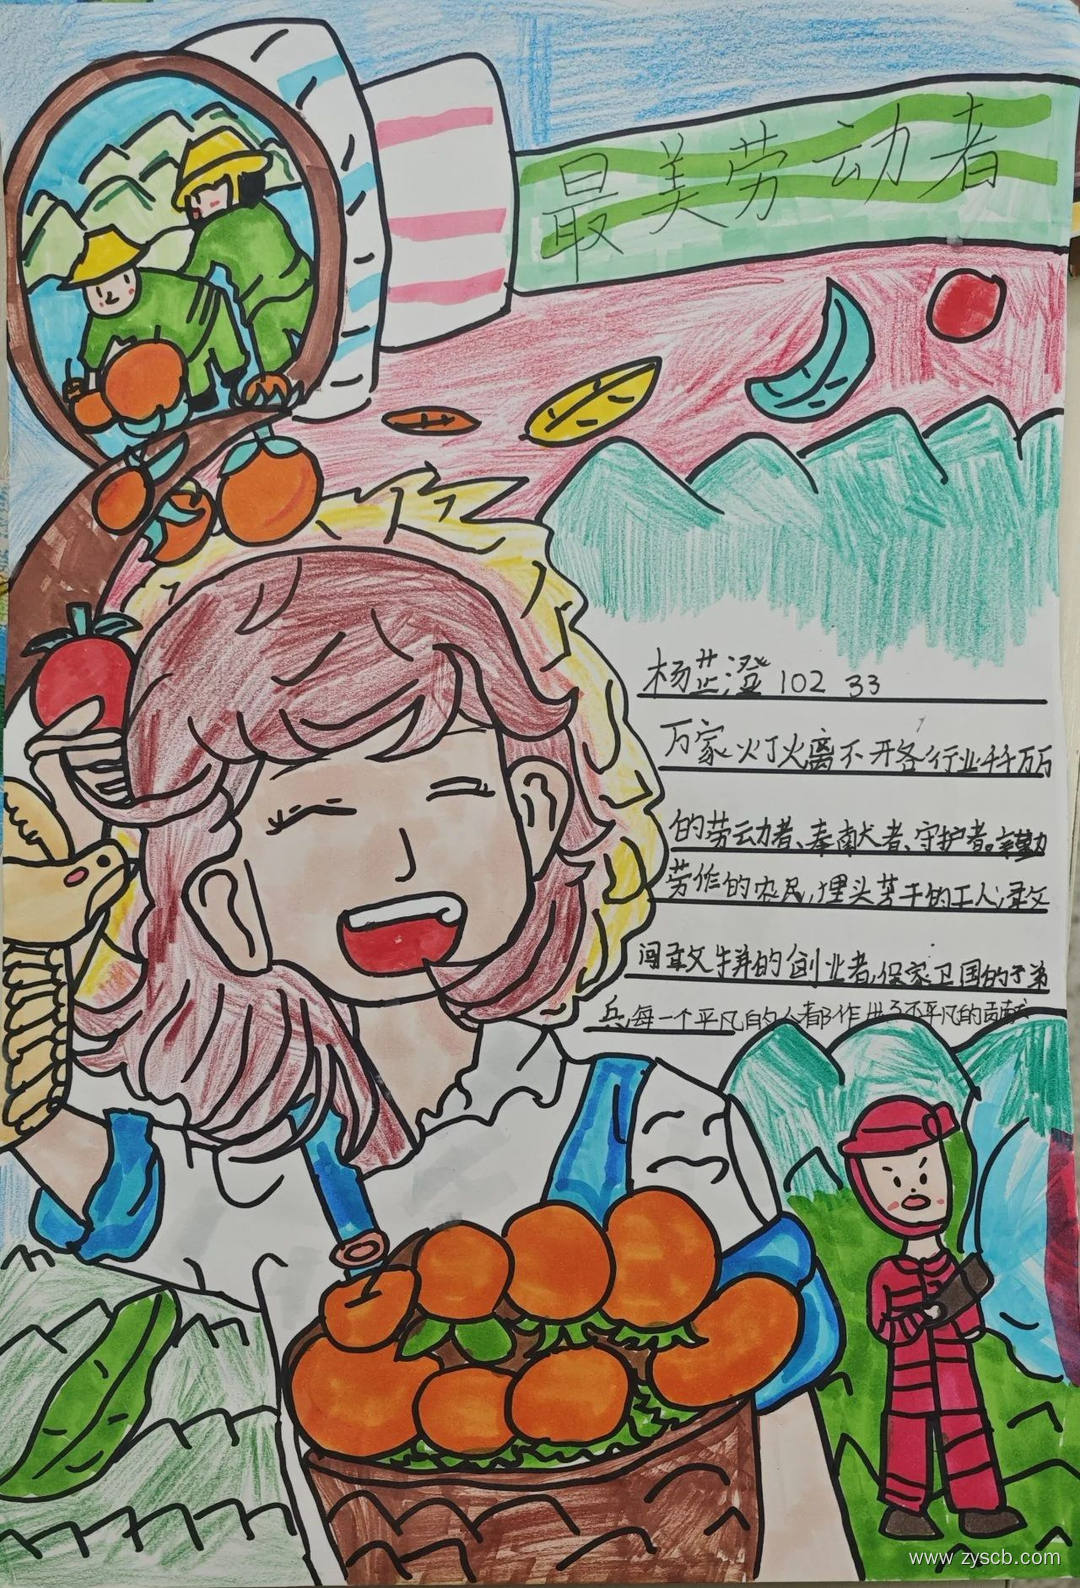 最美劳动者
杨芷澄 102 33
万家灯火离不开各行业千千万万
的劳动者、奉献者、守护者。辛勤
劳作的农民，埋头苦干的工人，敢
闯敢拼的创业者，保家卫国的子弟
兵，每一个平凡的人都作出了不平凡的贡献
www.zyscb.com